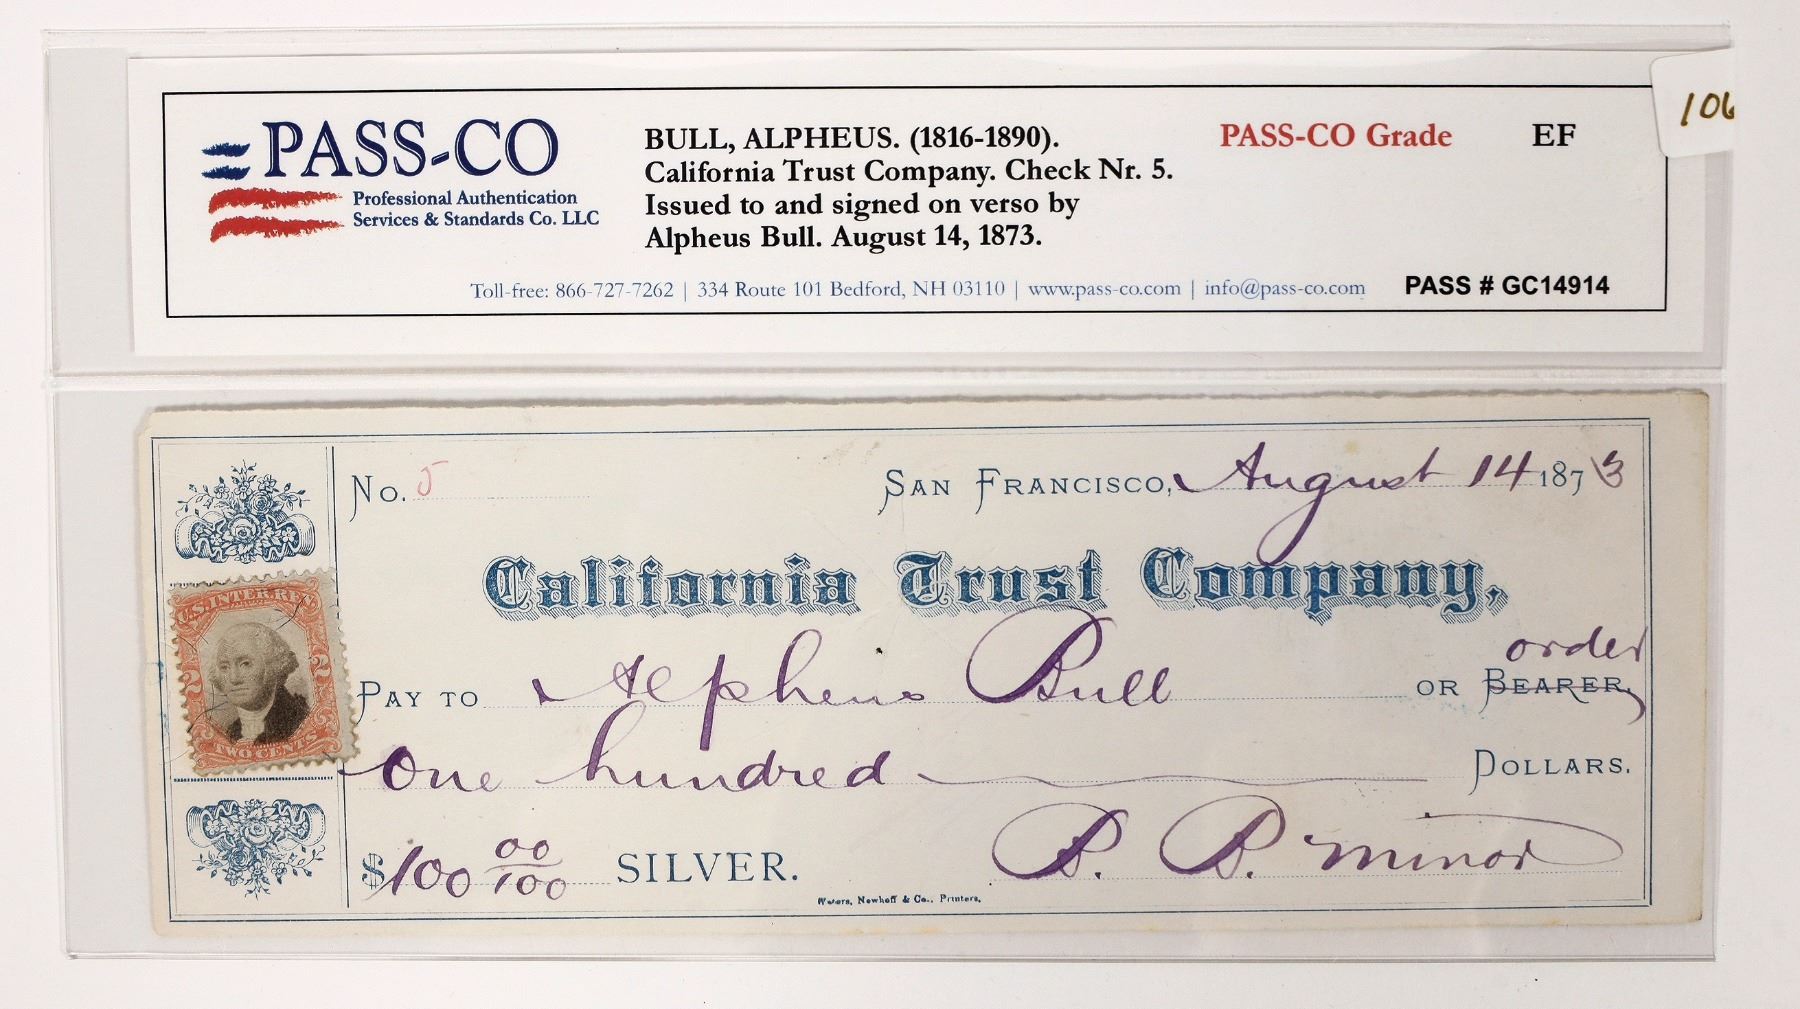 PASS-CO
Professional Authentication
Services & Standards Co. LLC
BULL, ALPHEUS. (1816-1890).
California Trust Company. Check Nr. 5.
Issued to and signed on verso by
Alpheus Bull. August 14, 1873.
PASS-CO Grade EF
106
Toll-free: 866-727-7262 | 334 Route 101 Bedford, NH 03110 | www.pass-co.com | info@pass-co.com
PASS # GC14914
No. 5
SAN FRANCISCO, August 14 1873
California Trust Company,
U.S. INTER. REV.
2 2
TWO CENTS
order
PAY TO Alpheus Bull OR BEARER,
One hundred DOLLARS.
$100 00/100 SILVER.
B. B. Minor
Waters, Newhoff & Co., Printers.